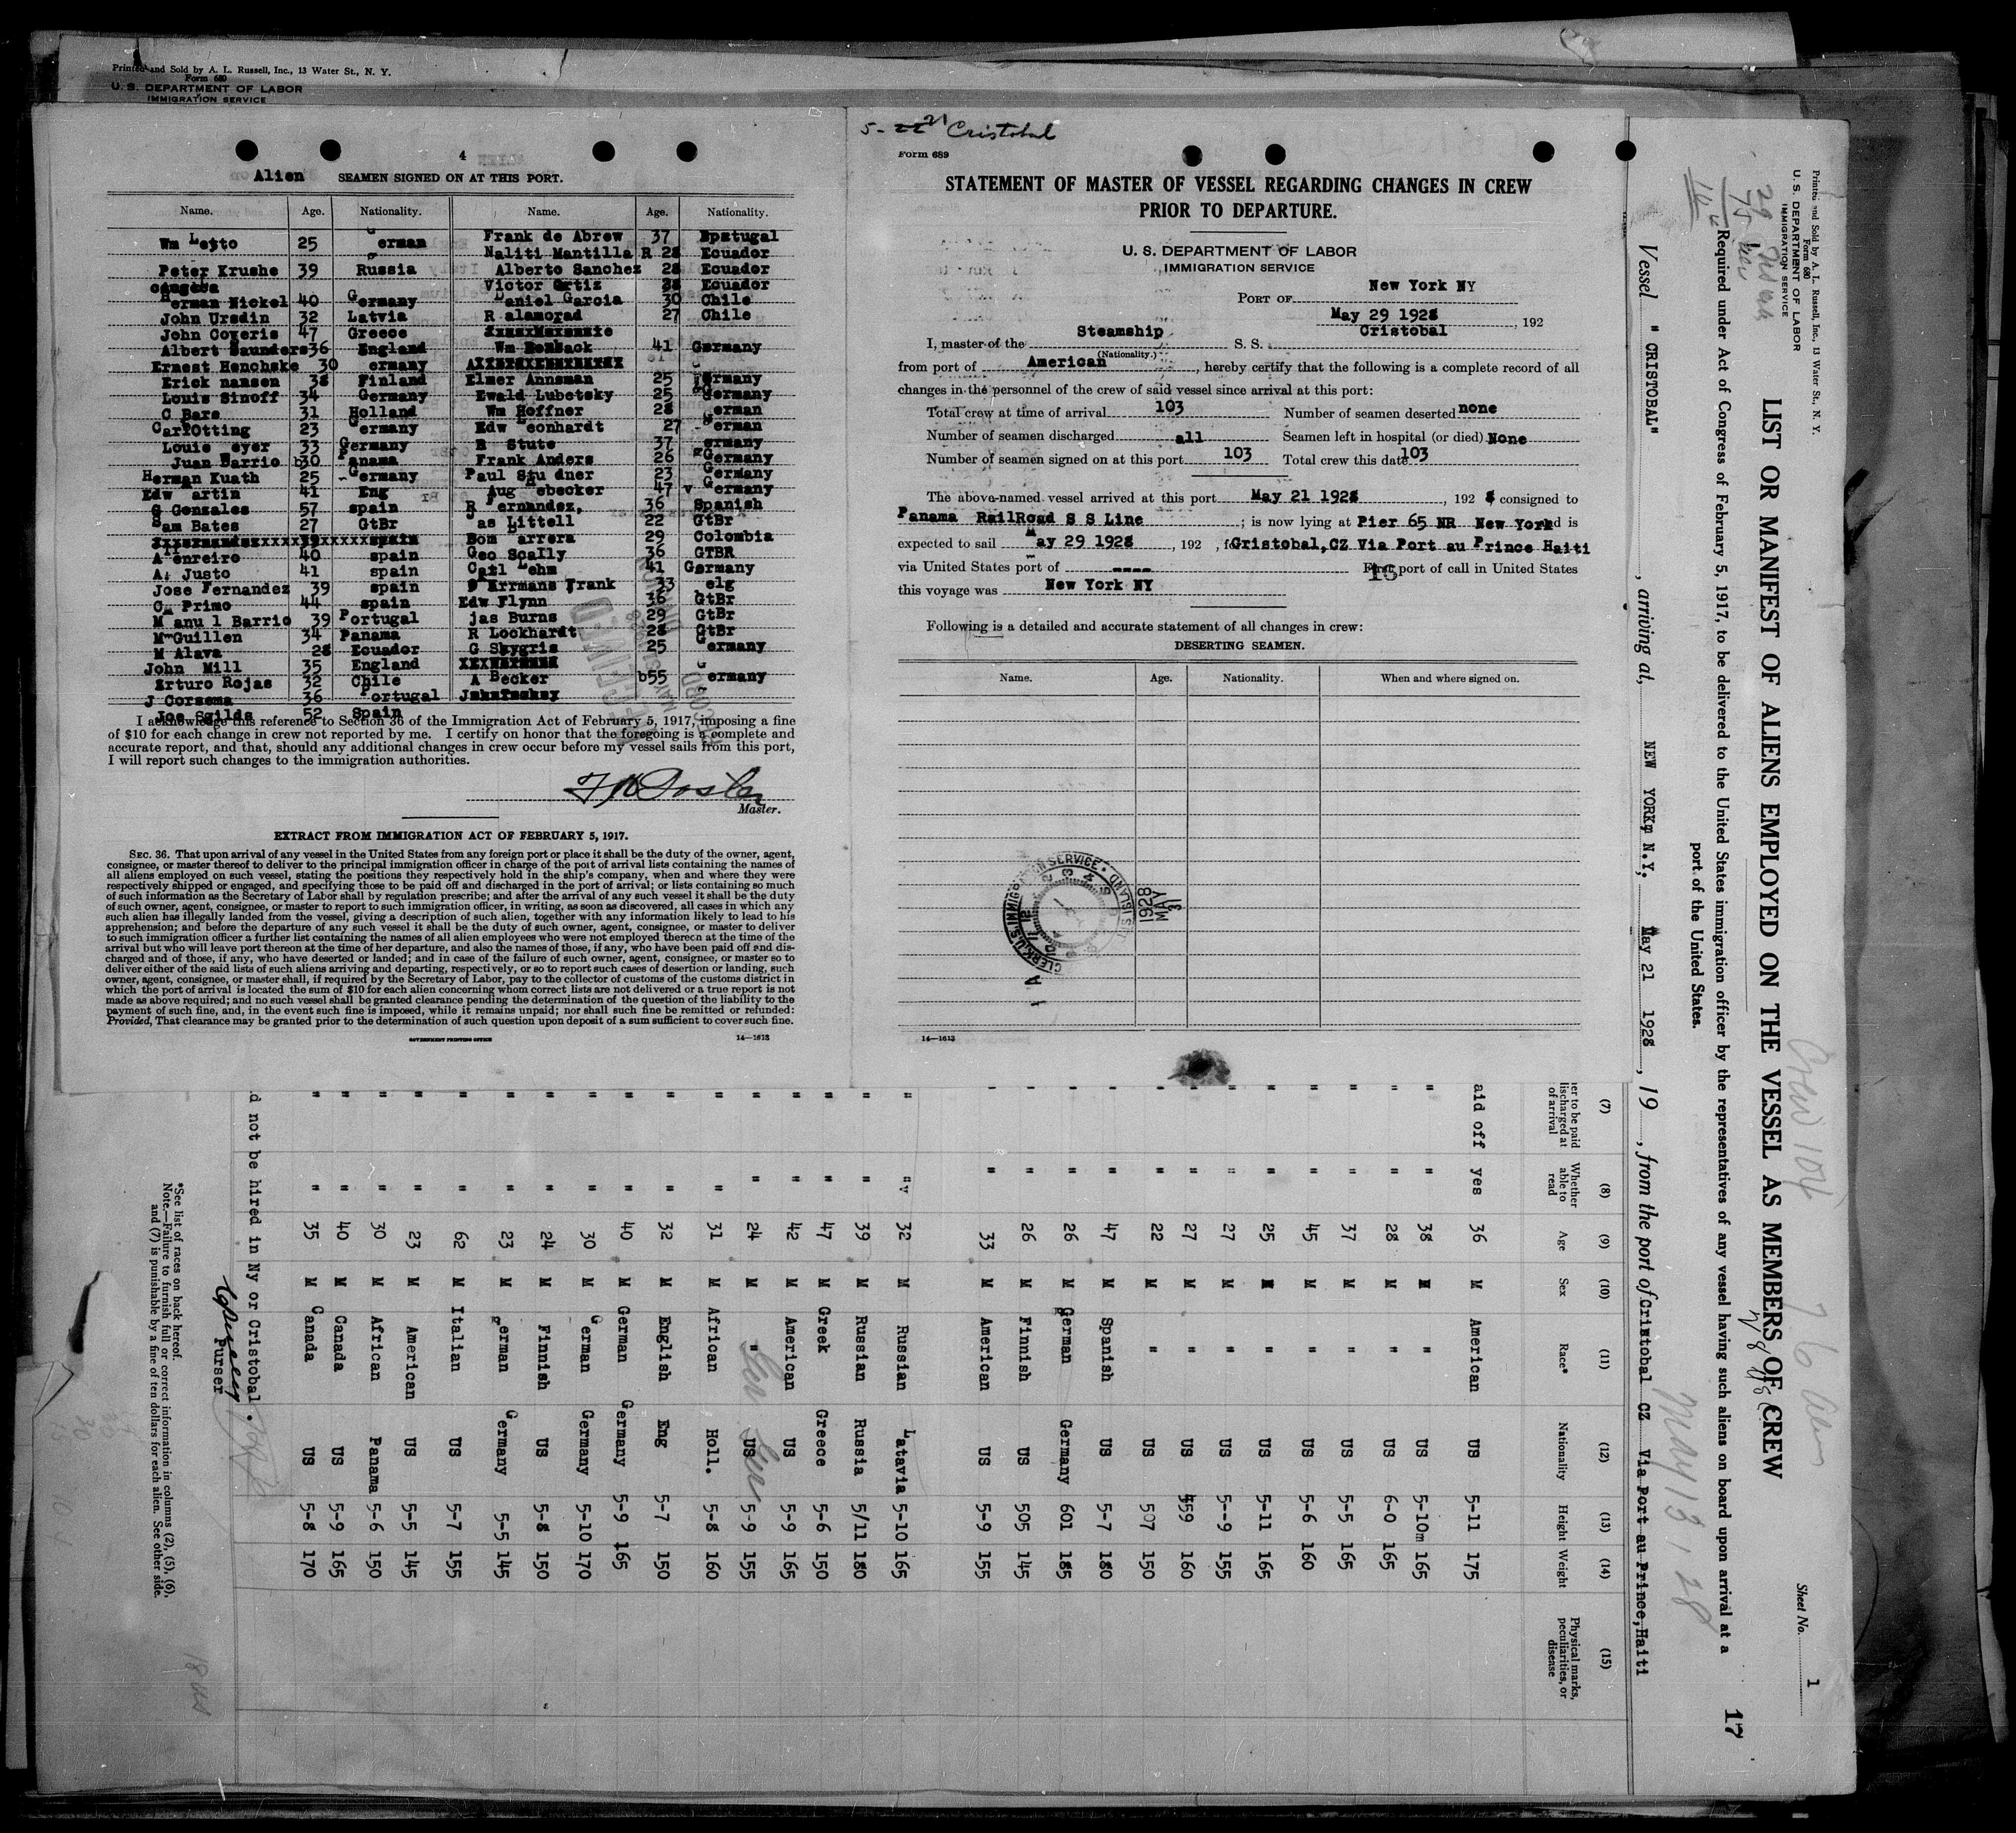 Printed and Sold by A. L. Russell, Inc., 13 Water St., N. Y.
Form 680
U. S. DEPARTMENT OF LABOR
IMMIGRATION SERVICE
4
Alien SEAMEN SIGNED ON AT THIS PORT.
Name. Age. Nationality. Name. Age. Nationality.
Wm Letto 25 German
Peter Krushe 39 Russia
Herman Nickel 40 Germany
John Ursdin 32 Latvia
John Coveris 47 Greece
Albert Saunders 36 England
Ernest Henchske 30 ermany
Erick nansen 38 Finland
Louis Sinoff 34 Germany
C Bare 31 Holland
Carl Otting 23 Germany
Louis eyer 33 Germany
Juan Barrio b30 Panama
Herman Kuath 25 Germany
Edw artin 41 Eng
G Gonzales 57 spain
Sam Bates 27 GtBr
A enreiro 40 spain
A. Justo 41 spain
Jose Fernandez 39 spain
C Primo 44 spain
Manu l Barrio 39 Portugal
M Guillen 34 Panama
M Alava 28 Ecuador
John Mill 35 England
Arturo Rojas 32 Chile
J Corsema 36 Portugal
Joe Sgilda 52 Spain
Frank de Abrew 37 Bpatugal
Naliti Mantilla R 28 Ecuador
Alberto Sanchez 28 Ecuador
Victor Ortiz 28 Ecuador
Daniel Garcia 30 Chile
R alamorad 27 Chile
Wm 41 Germany
Elmer Annsman 25 Germany
Ewald Lubetsky 25 Germany
Wm Hoffner 28 German
Edw eonhardt 27 erman
R Stute 37 ermany
Frank Anders 26 Germany
Paul Stu dner 23 Germany
Aug ebecker 47 Germany
R ernandez, 36 Spanish
as Littell 22 GtBr
Dom arrera 29 Colombia
Geo Scally 36 GTBR
Carl Lehm 41 Germany
Errmans Frank 33 elg
Edw Flynn 36 GtBr
jas Burns 29 GtBr
R Lockhardt 28 GtBr
G Skygris 25 Germany
A Becker b55 Germany
I acknowledge this reference to Section 36 of the Immigration Act of February 5, 1917, imposing a fine
of $10 for each change in crew not reported by me. I certify on honor that the foregoing is a complete and
accurate report, and that, should any additional changes in crew occur before my vessel sails from this port,
I will report such changes to the immigration authorities.
Master.
EXTRACT FROM IMMIGRATION ACT OF FEBRUARY 5, 1917.
SEC. 36. That upon arrival of any vessel in the United States from any foreign port or place it shall be the duty of the owner, agent,
consignee, or master thereof to deliver to the principal immigration officer in charge of the port of arrival lists containing the names of
all aliens employed on such vessel, stating the positions they respectively hold in the ship's company, when and where they were
respectively shipped or engaged, and specifying those to be paid off and discharged in the port of arrival; or lists containing so much
of such information as the Secretary of Labor shall by regulation prescribe; and after the arrival of any such vessel it shall be the duty
of such owner, agent, consignee, or master to report to such immigration officer, in writing, as soon as discovered, all cases in which any
such alien has illegally landed from the vessel, giving a description of such alien, together with any information likely to lead to his
apprehension; and before the departure of any such vessel it shall be the duty of such owner, agent, consignee, or master to deliver
to such immigration officer a further list containing the names of all alien employees who were not employed thereon at the time of the
arrival but who will leave port thereon at the time of her departure, and also the names of those, if any, who have been paid off and dis-
charged and of those, if any, who have deserted or landed; and in case of the failure of such owner, agent, consignee, or master so to
deliver either of the said lists of such aliens arriving and departing, respectively, or so to report such cases of desertion or landing, such
owner, agent, consignee, or master shall, if required by the Secretary of Labor, pay to the collector of customs of the customs district in
which the port of arrival is located the sum of $10 for each alien concerning whom correct lists are not delivered or a true report is not
made as above required; and no such vessel shall be granted clearance pending the determination of the question of the liability to the
payment of such fine, and, in the event such fine is imposed, while it remains unpaid; nor shall such fine be remitted or refunded:
Provided, That clearance may be granted prior to the determination of such question upon deposit of a sum sufficient to cover such fine.
GOVERNMENT PRINTING OFFICE 14—1613
5-22 21 Cristobal
Form 689
STATEMENT OF MASTER OF VESSEL REGARDING CHANGES IN CREW
PRIOR TO DEPARTURE.
U. S. DEPARTMENT OF LABOR
IMMIGRATION SERVICE
PORT OF New York NY
May 29 1928, 192
I, master of the Steamship S. S. Cristobal
(Nationality.)
from port of American, hereby certify that the following is a complete record of all
changes in the personnel of the crew of said vessel since arrival at this port:
Total crew at time of arrival 103 Number of seamen deserted none
Number of seamen discharged all Seamen left in hospital (or died) None
Number of seamen signed on at this port 103 Total crew this date 103
The above-named vessel arrived at this port May 21 1928, 192 8 consigned to
Panama RailRoad S S Line; is now lying at Pier 65 NR New York d is
expected to sail May 29 1928, 192 , f Cristobal,CZ Via Port au Prince Haiti
via United States port of ---- First port of call in United States
this voyage was New York NY
Following is a detailed and accurate statement of all changes in crew:
DESERTING SEAMEN.
Name. Age. Nationality. When and where signed on.
1928
MAY
14—1613
Printed and Sold by A. L. Russell, Inc., 13 Water St., N. Y.
Form 680
U. S. DEPARTMENT OF LABOR
IMMIGRATION SERVICE
Sheet No. 1
Crew 104
76 Alien
LIST OR MANIFEST OF ALIENS EMPLOYED ON THE VESSEL AS MEMBERS OF CREW
17
Required under Act of Congress of February 5, 1917, to be delivered to the United States immigration officer by the representatives of any vessel having such aliens on board upon arrival at a
port of the United States.
May 13 / 28
Vessel "CRISTOBAL", arriving at, NEW YORKm N.Y, May 21 1928, 19 , from the port of Cristobal CZ Via Port au Prince,Haiti
(7) (8) (9) (10) (11) (12) (13) (14) (15)
er to be paid
discharged at
of arrival
Whether
able to
read
Age Sex Race* Nationality Height Weight
Physical marks,
peculiarities, or
disease
aid off yes 36 M American US 5-11 175
" " 38 M " US 5-10m 165
" " 28 M " US 6-0 165
" " 37 M " US 5-5 165
" " 45 M " US 5-6 160
" " 25 M " US 5-11 165
" " 27 M " US 5--9 155
" " 27 M " US 559 160
" " 22 M " US 507 150
" " 47 M Spanish US 5-7 180
" " 26 M German Germany 601 185
" " 26 M Finnish US 505 145
" " 33 M American US 5-9 155
" " 32 M Russian Latavia 5-10 165
" " 39 M Russian Russia 5/11 180
" " 47 M Greek Greece 5-6 150
" " 42 M American US 5-9 165
" " 24 M " US 5-9 155
" " 31 M African Holl. 5-8 160
" " 32 M English Eng 5-7 150
" " 40 M German Germany 5-9 165
" " 30 M German Germany 5-10 170
" " 24 M Finnish US 5-8 150
" " 23 M German Germany 5-5 145
" " 62 M Italian US 5-7 155
" " 23 M American US 5-5 145
" " 30 M African Panama 5-6 150
" " 40 M Canada US 5-9 165
" " 35 M Canada US 5-8 170
d not be hired in Ny or Cristobal .
Purser
*See list of races on back hereof.
Note.—Failure to furnish full or correct information in columns (2), (5), (6),
and (7) is punishable by a fine of ten dollars for each alien. See other side.